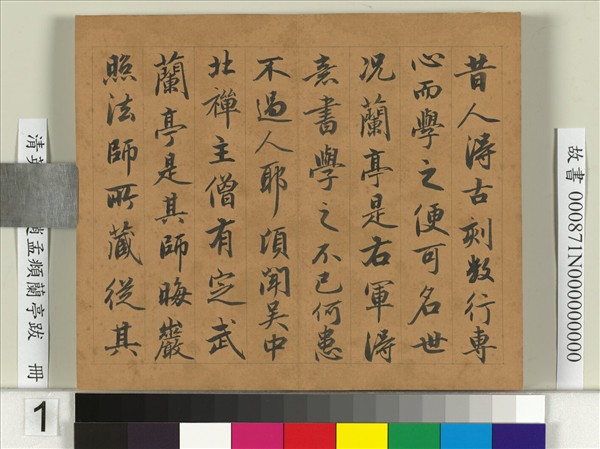 昔人得古刻數行專
心而學之便可名世
况蘭亭是右軍得
意書學之不已何患
不過人耶頃聞吴中
北禪主僧有定武
蘭亭是其師晦巖
照法師所藏從其
故書 000871N000000000
趙孟頫蘭亭跋 冊
清
1